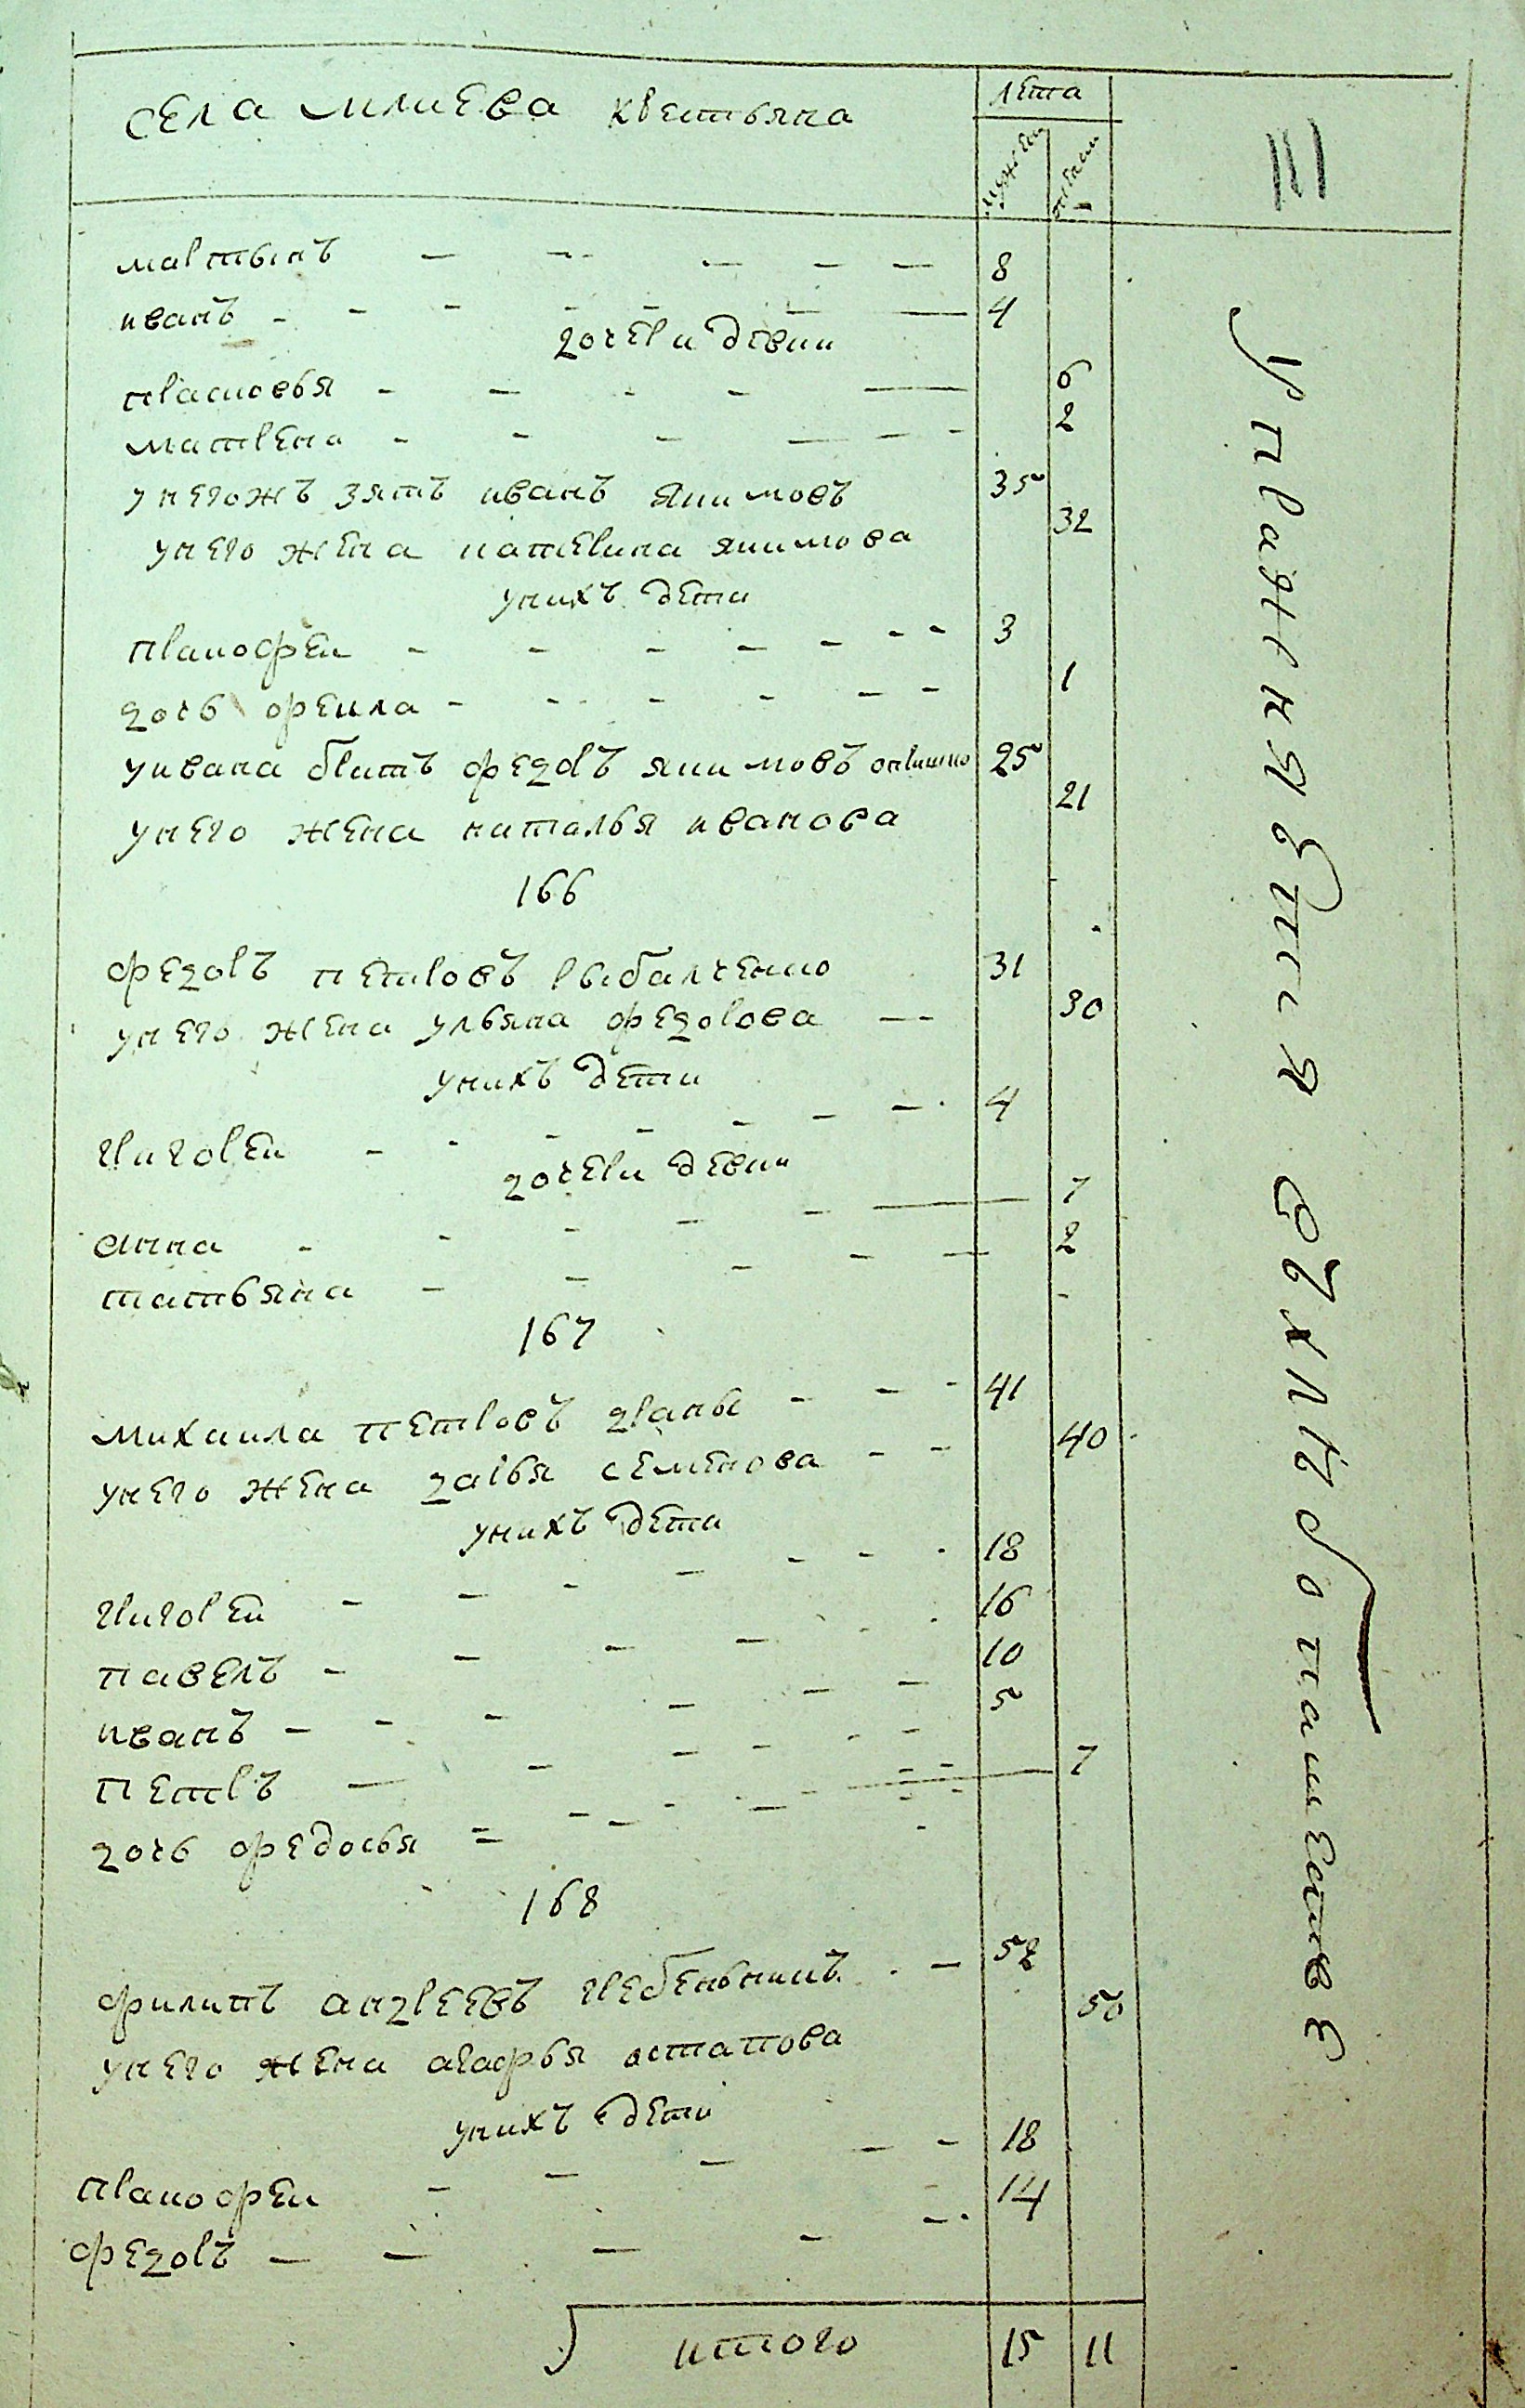 села млиева крестьяна
лета
мужески
женски
мартынъ 8
иванъ 4
дочери девки
прасковья 6
матрена 2
унегожъ зять иванъ якимовъ 35
унего жена катерина якимова 32
унихъ дети
пракофеи 3
дочь офекла 1
уивана братъ федоръ якимовъ 25
унего жена наталья иванова 21
166
федоръ петровъ рыбалченко 31
унего жена ульяна федорова 30
унихъ дети
григореи 4
дочери девки
анна 7
татьяна 2
167
михаила петровъ драны 41
унего жена дарья семенова 40
унихъ дети
григореи 18
павелъ 16
иванъ 10
петръ 5
дочь федосья 7
168
филипъ андреевъ гребеньникъ 52
унего жена агафья остапова 50
унихъ дети
пракофеи 18
федоръ 14
итого 15 11
Упражняются в хлебопашестве